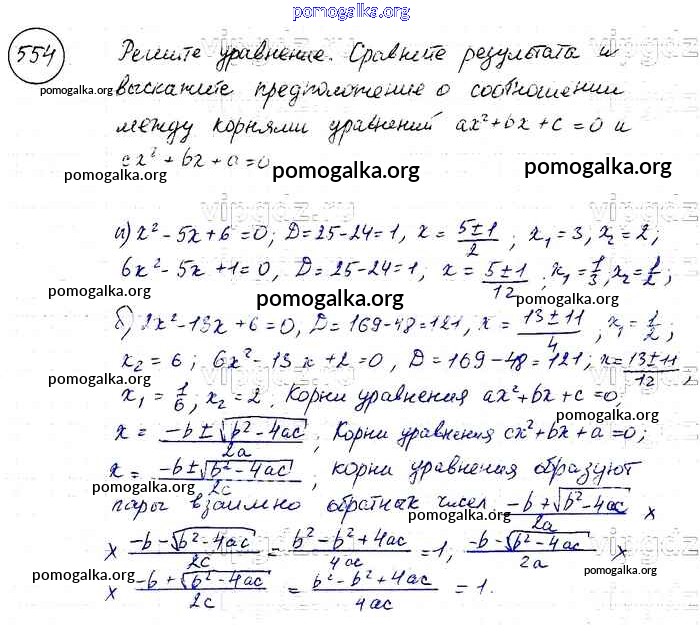 pomogalka.org
554 Решите уравнение. Сравните результата и
pomogalka.org выскажите предположение о соотношении
между корнями уравнений ax²+bx+c=0 и
cx²+bx+a=0
pomogalka.org pomogalka.org pomogalka.org
vipgdz.ru
а) x² - 5x + 6 = 0; D = 25-24 = 1, x = (5±1)/2; x₁ = 3, x₂ = 2;
6x² - 5x + 1 = 0, D = 25-24 = 1, x = (5±1)/12, x₁ = 1/3, x₂ = 1/2;
pomogalka.org pomogalka.org pomogalka.org
б) 2x² - 13x + 6 = 0, D = 169-48 = 121, x = (13±11)/4, x₁ = 1/2,
x₂ = 6; 6x² - 13x + 2 = 0, D = 169-48 = 121; x = (13±11)/12,
pomogalka.org pomogalka.org
x₁ = 1/6, x₂ = 2. Корни уравнения ax²+bx+c=0,
pomogalka.org
x = (-b±√(b²-4ac))/2a; Корни уравнения cx²+bx+a=0;
x = (-b±√(b²-4ac))/2c, корни уравнения образуют
pomogalka.org
пары взаимно обратных чисел (-b+√(b²-4ac))/2a ×
pomogalka.org
× (-b-√(b²-4ac))/2c = (b²-b²+4ac)/4ac = 1, (-b-√(b²-4ac))/2a ×
pomogalka.org pomogalka.org
× (-b+√(b²-4ac))/2c = (b²-b²+4ac)/4ac = 1.